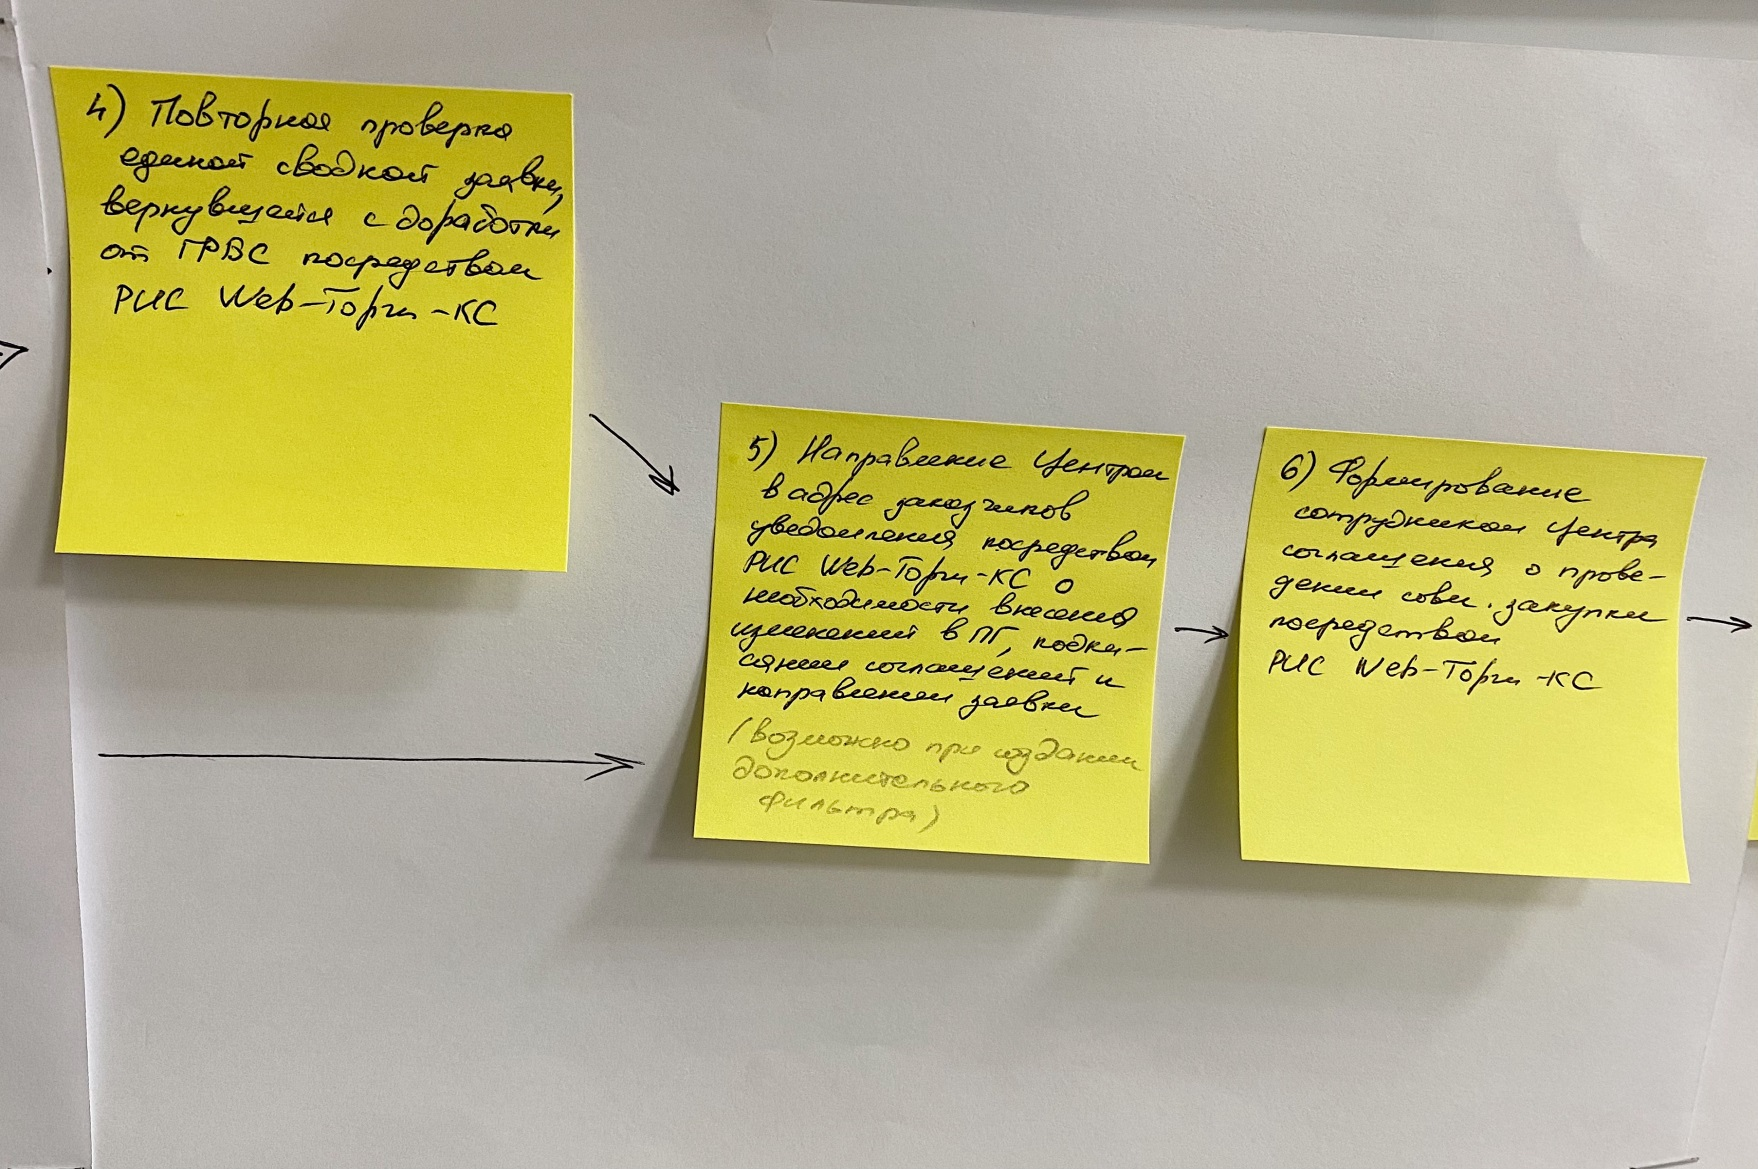 4) Повторная проверка
единой сводной заявки,
вернувшейся с доработки
от ГРБС посредством
РИС Web-Торги-КС
5) Направление Центром
в адрес заказчиков
уведомления посредством
РИС Web-Торги-КС о
необходимости внесения
изменений в ПГ, подпи-
сании соглашений и
направлении заявки
(возможно при создании
дополнительного
фильтра)
6) Формирование
сотрудником Центра
соглашения о прове-
дении совм. закупки
посредством
РИС Web-Торги-КС